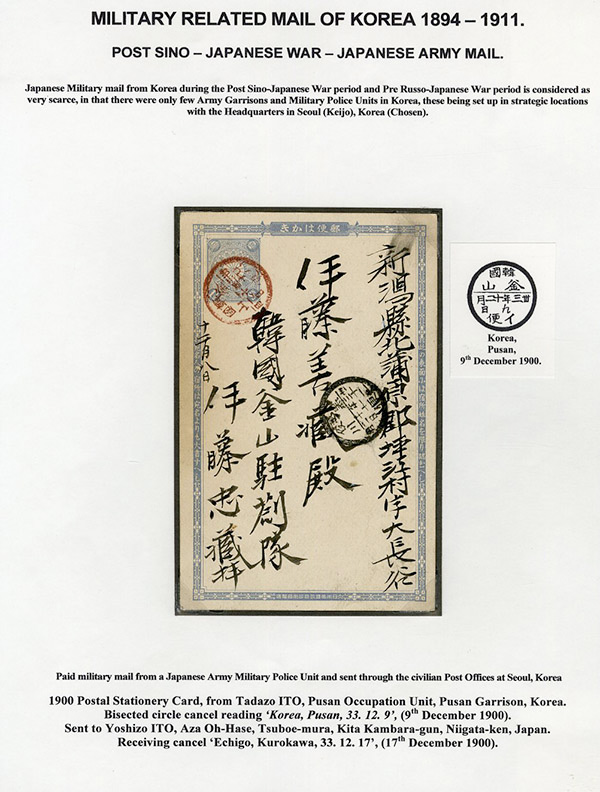 MILITARY RELATED MAIL OF KOREA 1894 – 1911.
POST SINO – JAPANESE WAR – JAPANESE ARMY MAIL.
Japanese Military mail from Korea during the Post Sino-Japanese War period and Pre Russo-Japanese War period is considered as
very scarce, in that there were only few Army Garrisons and Military Police Units in Korea, these being set up in strategic locations
with the Headquarters in Seoul (Keijo), Korea (Chosen).
きかは便郵
新潟縣北蒲原郡
村字大長谷
伊藤善藏殿
韓國釜山駐劄隊
十二月八日
伊藤忠藏拝
韓國
釜山
卅三年十二月
九日
イ便
Korea,
Pusan,
9th December 1900.
Paid military mail from a Japanese Army Military Police Unit and sent through the civilian Post Offices at Seoul, Korea
1900 Postal Stationery Card, from Tadazo ITO, Pusan Occupation Unit, Pusan Garrison, Korea.
Bisected circle cancel reading ‘Korea, Pusan, 33. 12. 9’, (9th December 1900).
Sent to Yoshizo ITO, Aza Oh-Hase, Tsuboe-mura, Kita Kambara-gun, Niigata-ken, Japan.
Receiving cancel ‘Echigo, Kurokawa, 33. 12. 17’, (17th December 1900).